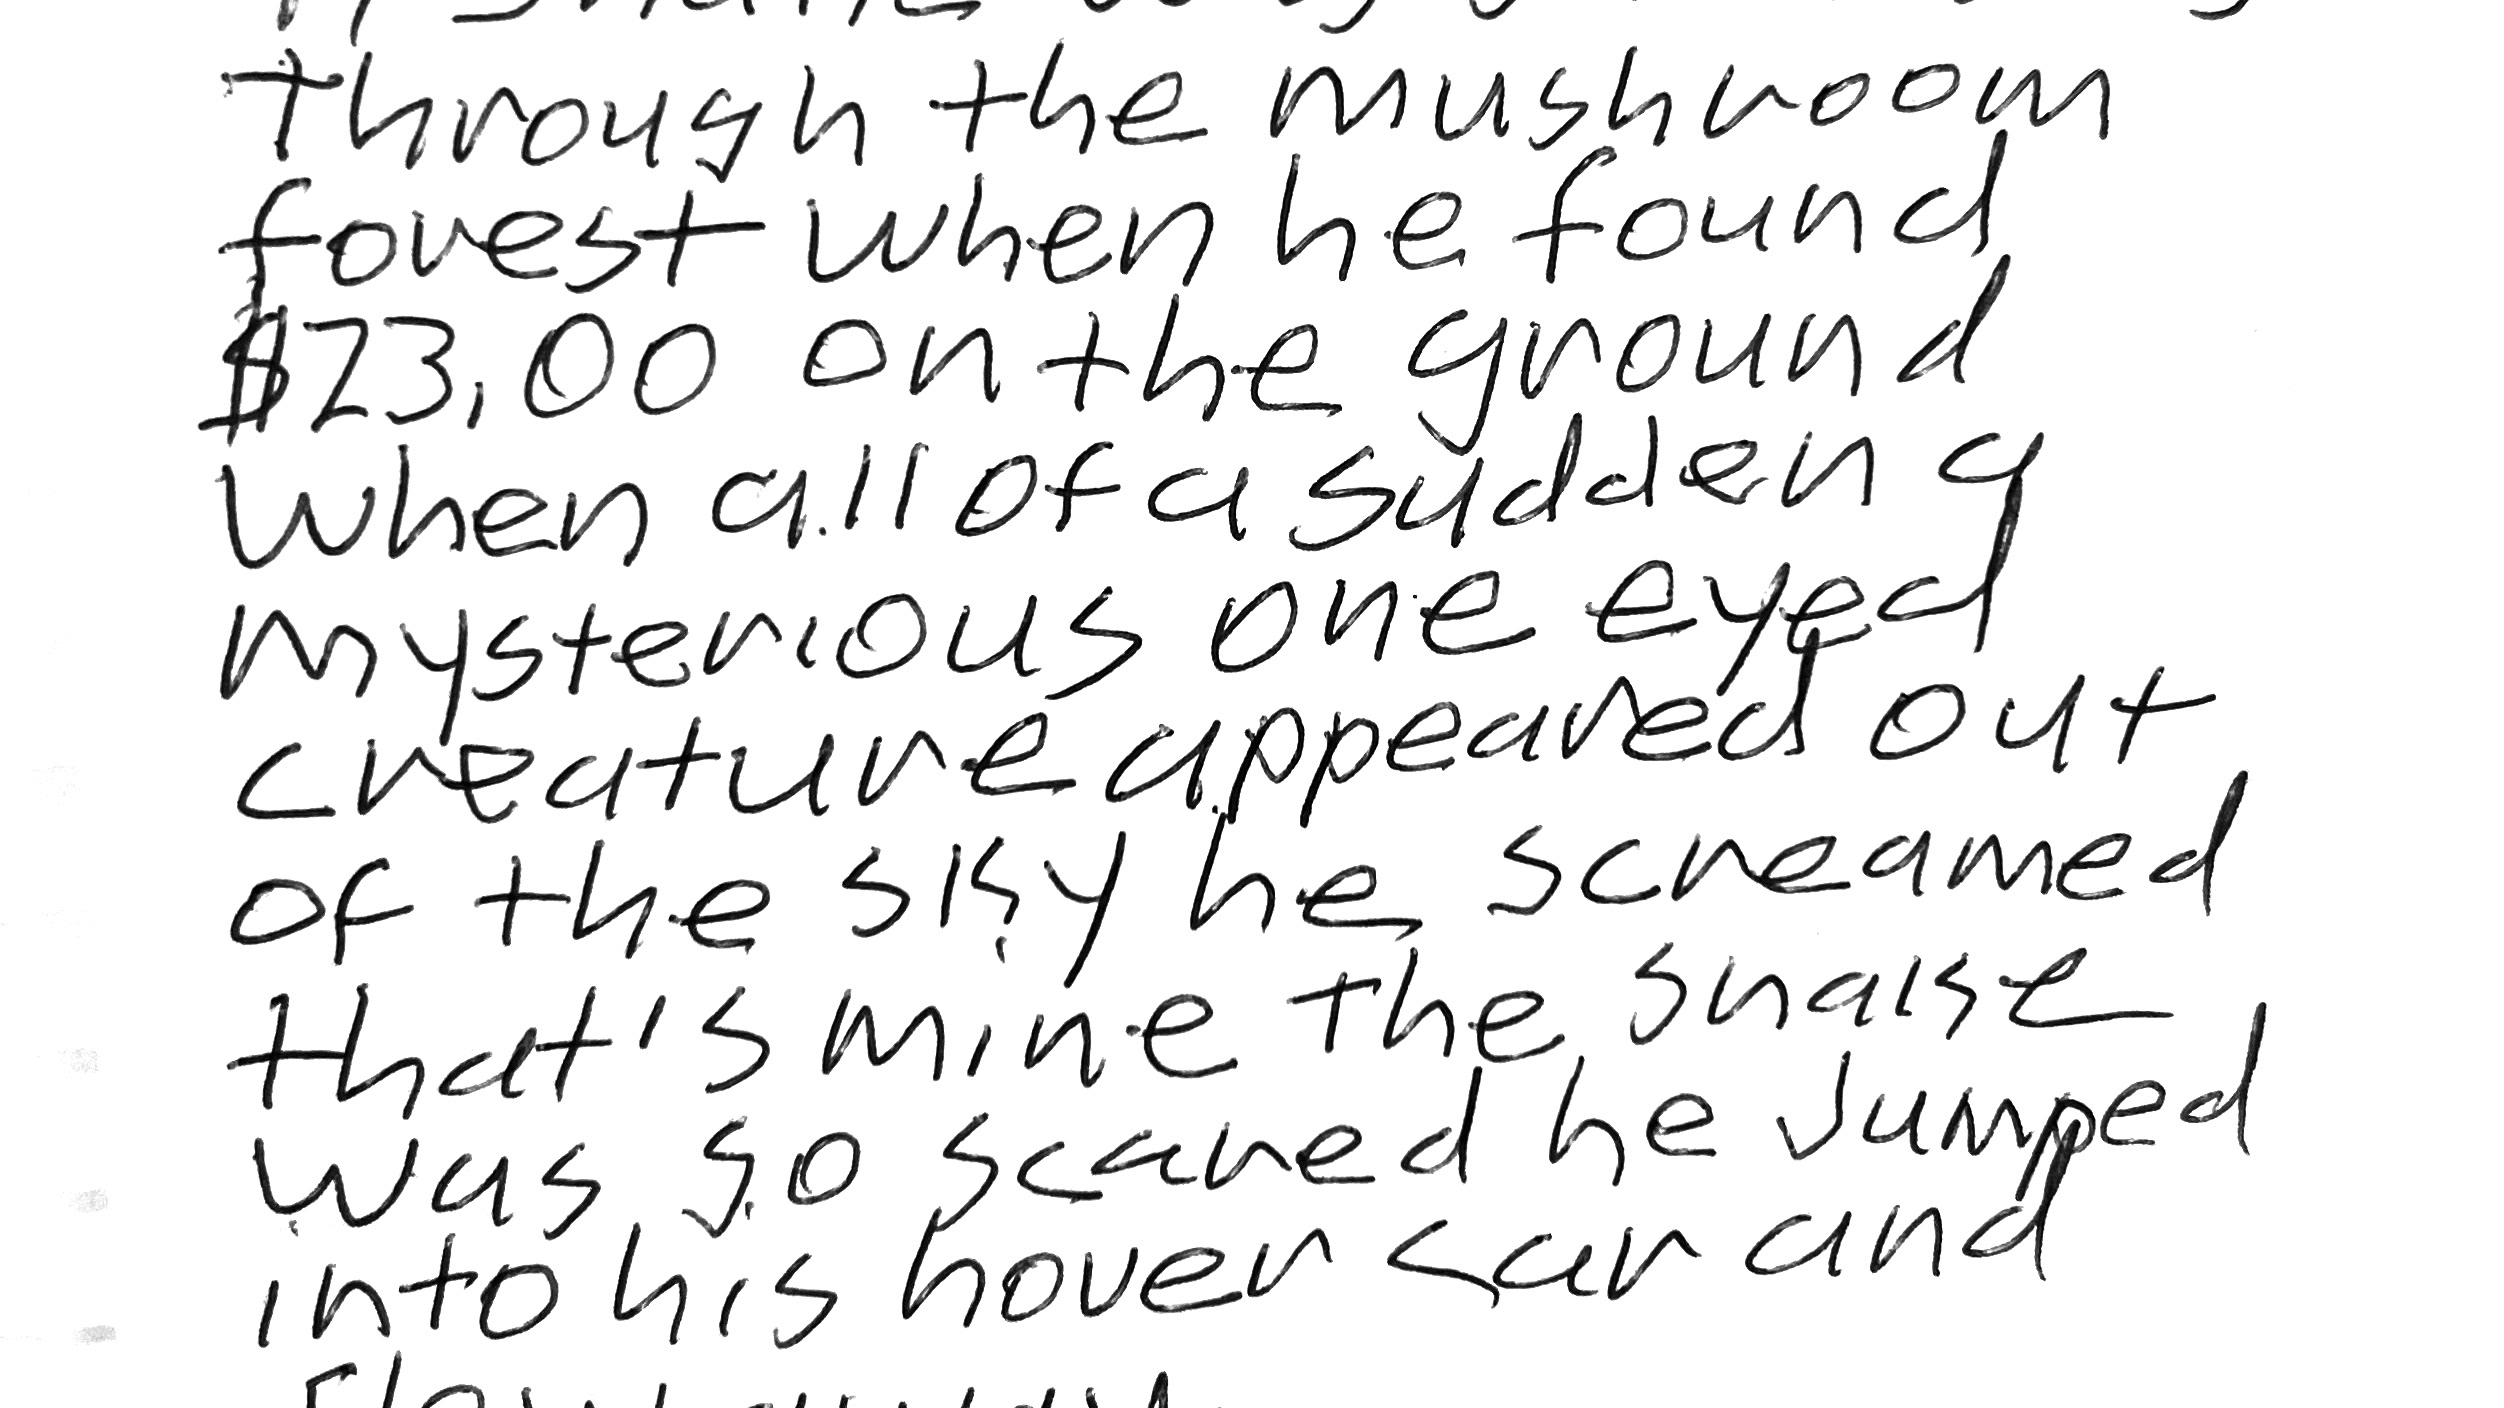 through the mushroom
forest when he found
$23,00 on the ground
when all of a sudden a
mysterious one eyed
creature appeared out
of the sky he screamed
that's mine the snaise
was so scared he jumped
into his hover car and